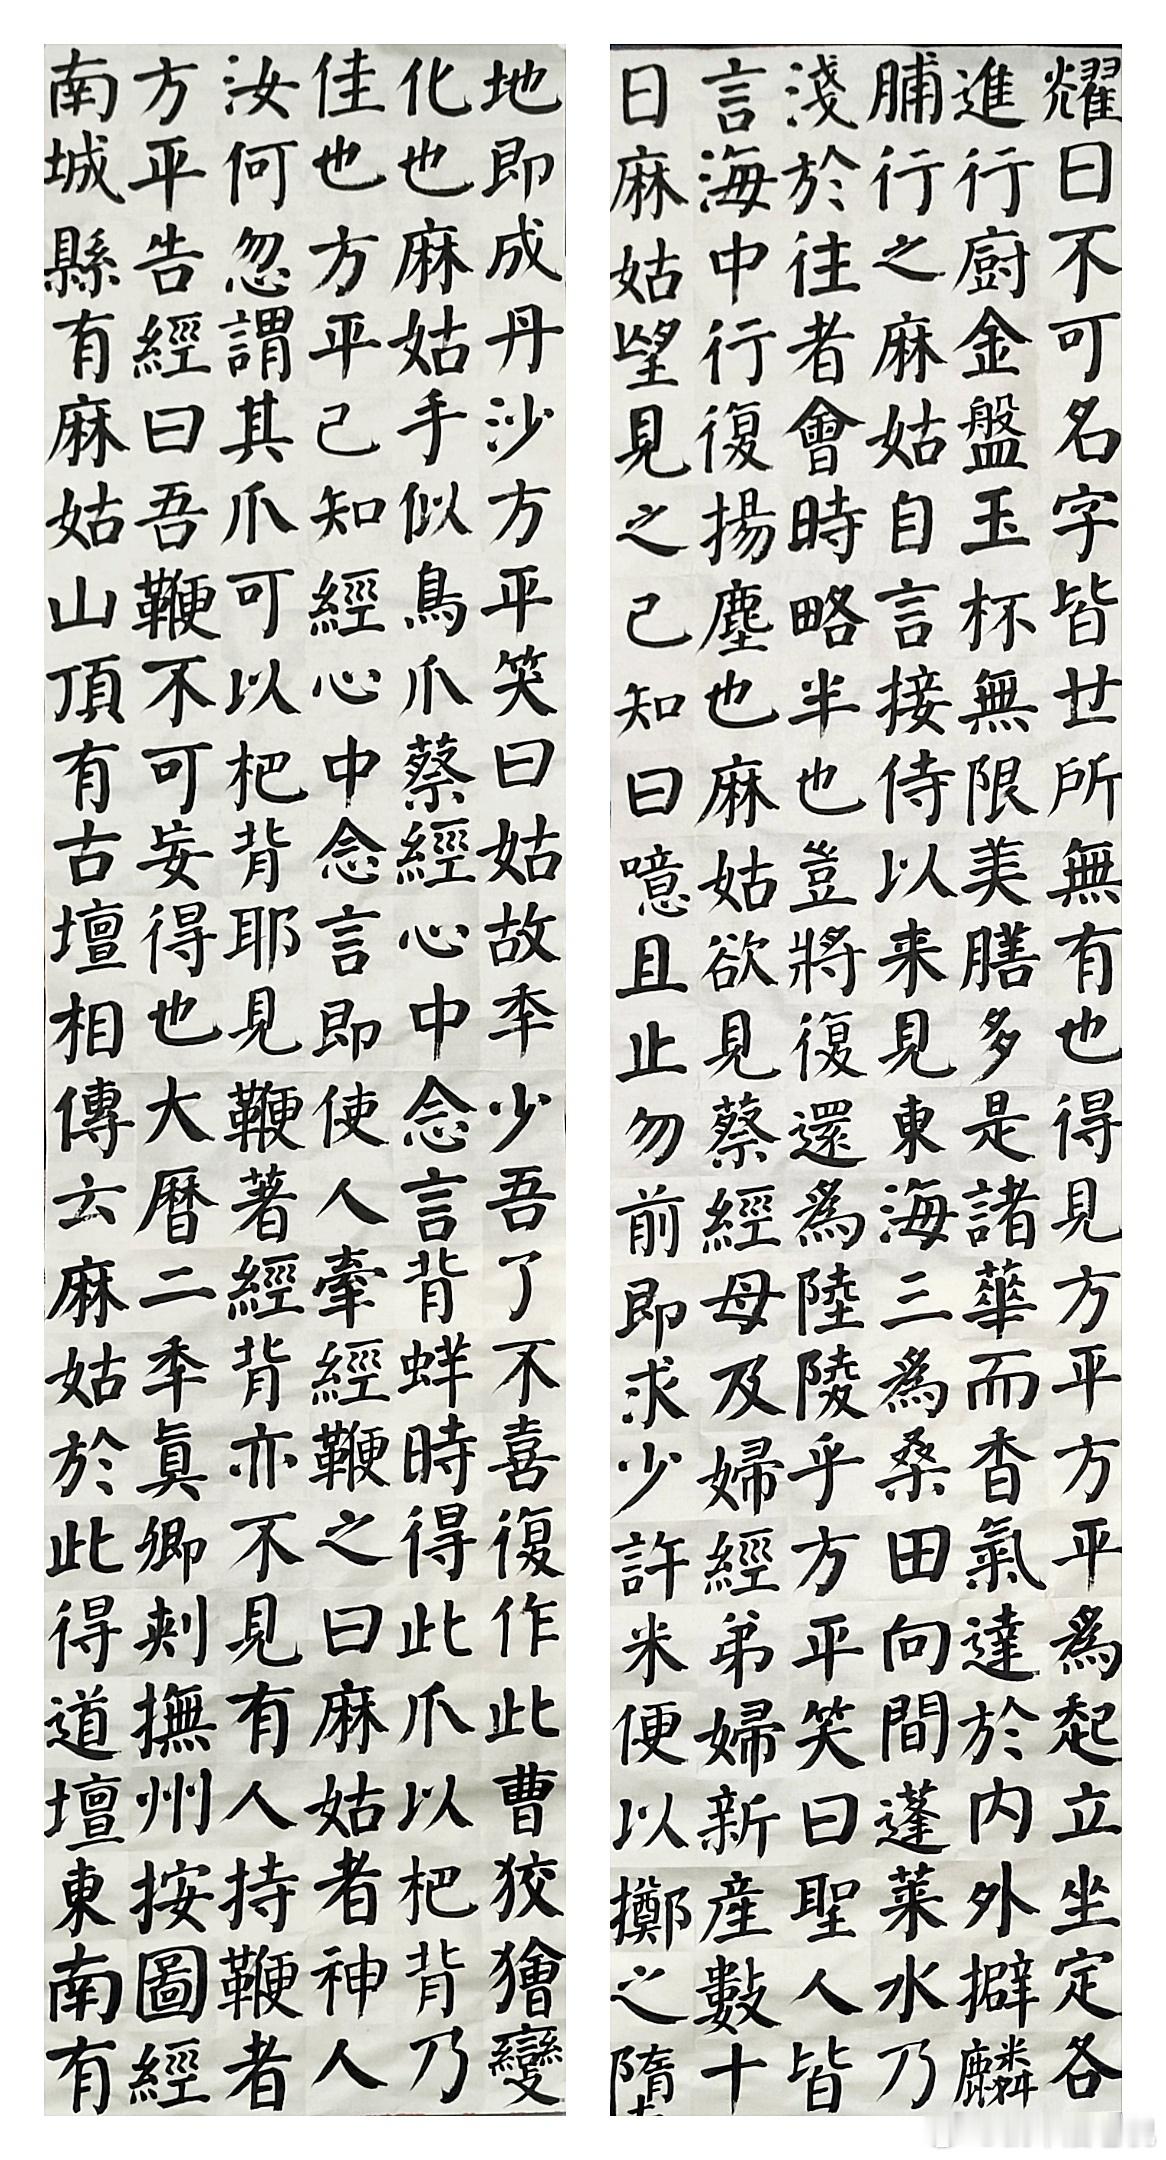 耀曰不可名字皆世所無有也得見方平方平為起立坐定各
進行廚金盤玉杯無限美膳多是諸華而香氣達於内外擗麟
脯行之麻姑自言接侍以来見東海三為桑田向間蓬萊水乃
淺於往者會時略半也豈將復還為陸陵乎方平笑曰聖人皆
言海中行復揚塵也麻姑欲見蔡經母及婦經弟婦新產數十
日麻姑望見之已知曰噫且止勿前即求少許米便以擲之墮
地即成丹沙方平笑曰姑故年少吾了不喜復作此曹狡獪變
化也麻姑手似鳥爪蔡經心中念言背蛘時得此爪以杷背乃
佳也方平已知經心中念言即使人牽經鞭之曰麻姑者神人
汝何忽謂其爪可以杷背耶見鞭著經背亦不見有人持鞭者
方平告經曰吾鞭不可妄得也大曆二年真卿刺撫州按圖經
南城縣有麻姑山頂有古壇相傳云麻姑於此得道壇東南有